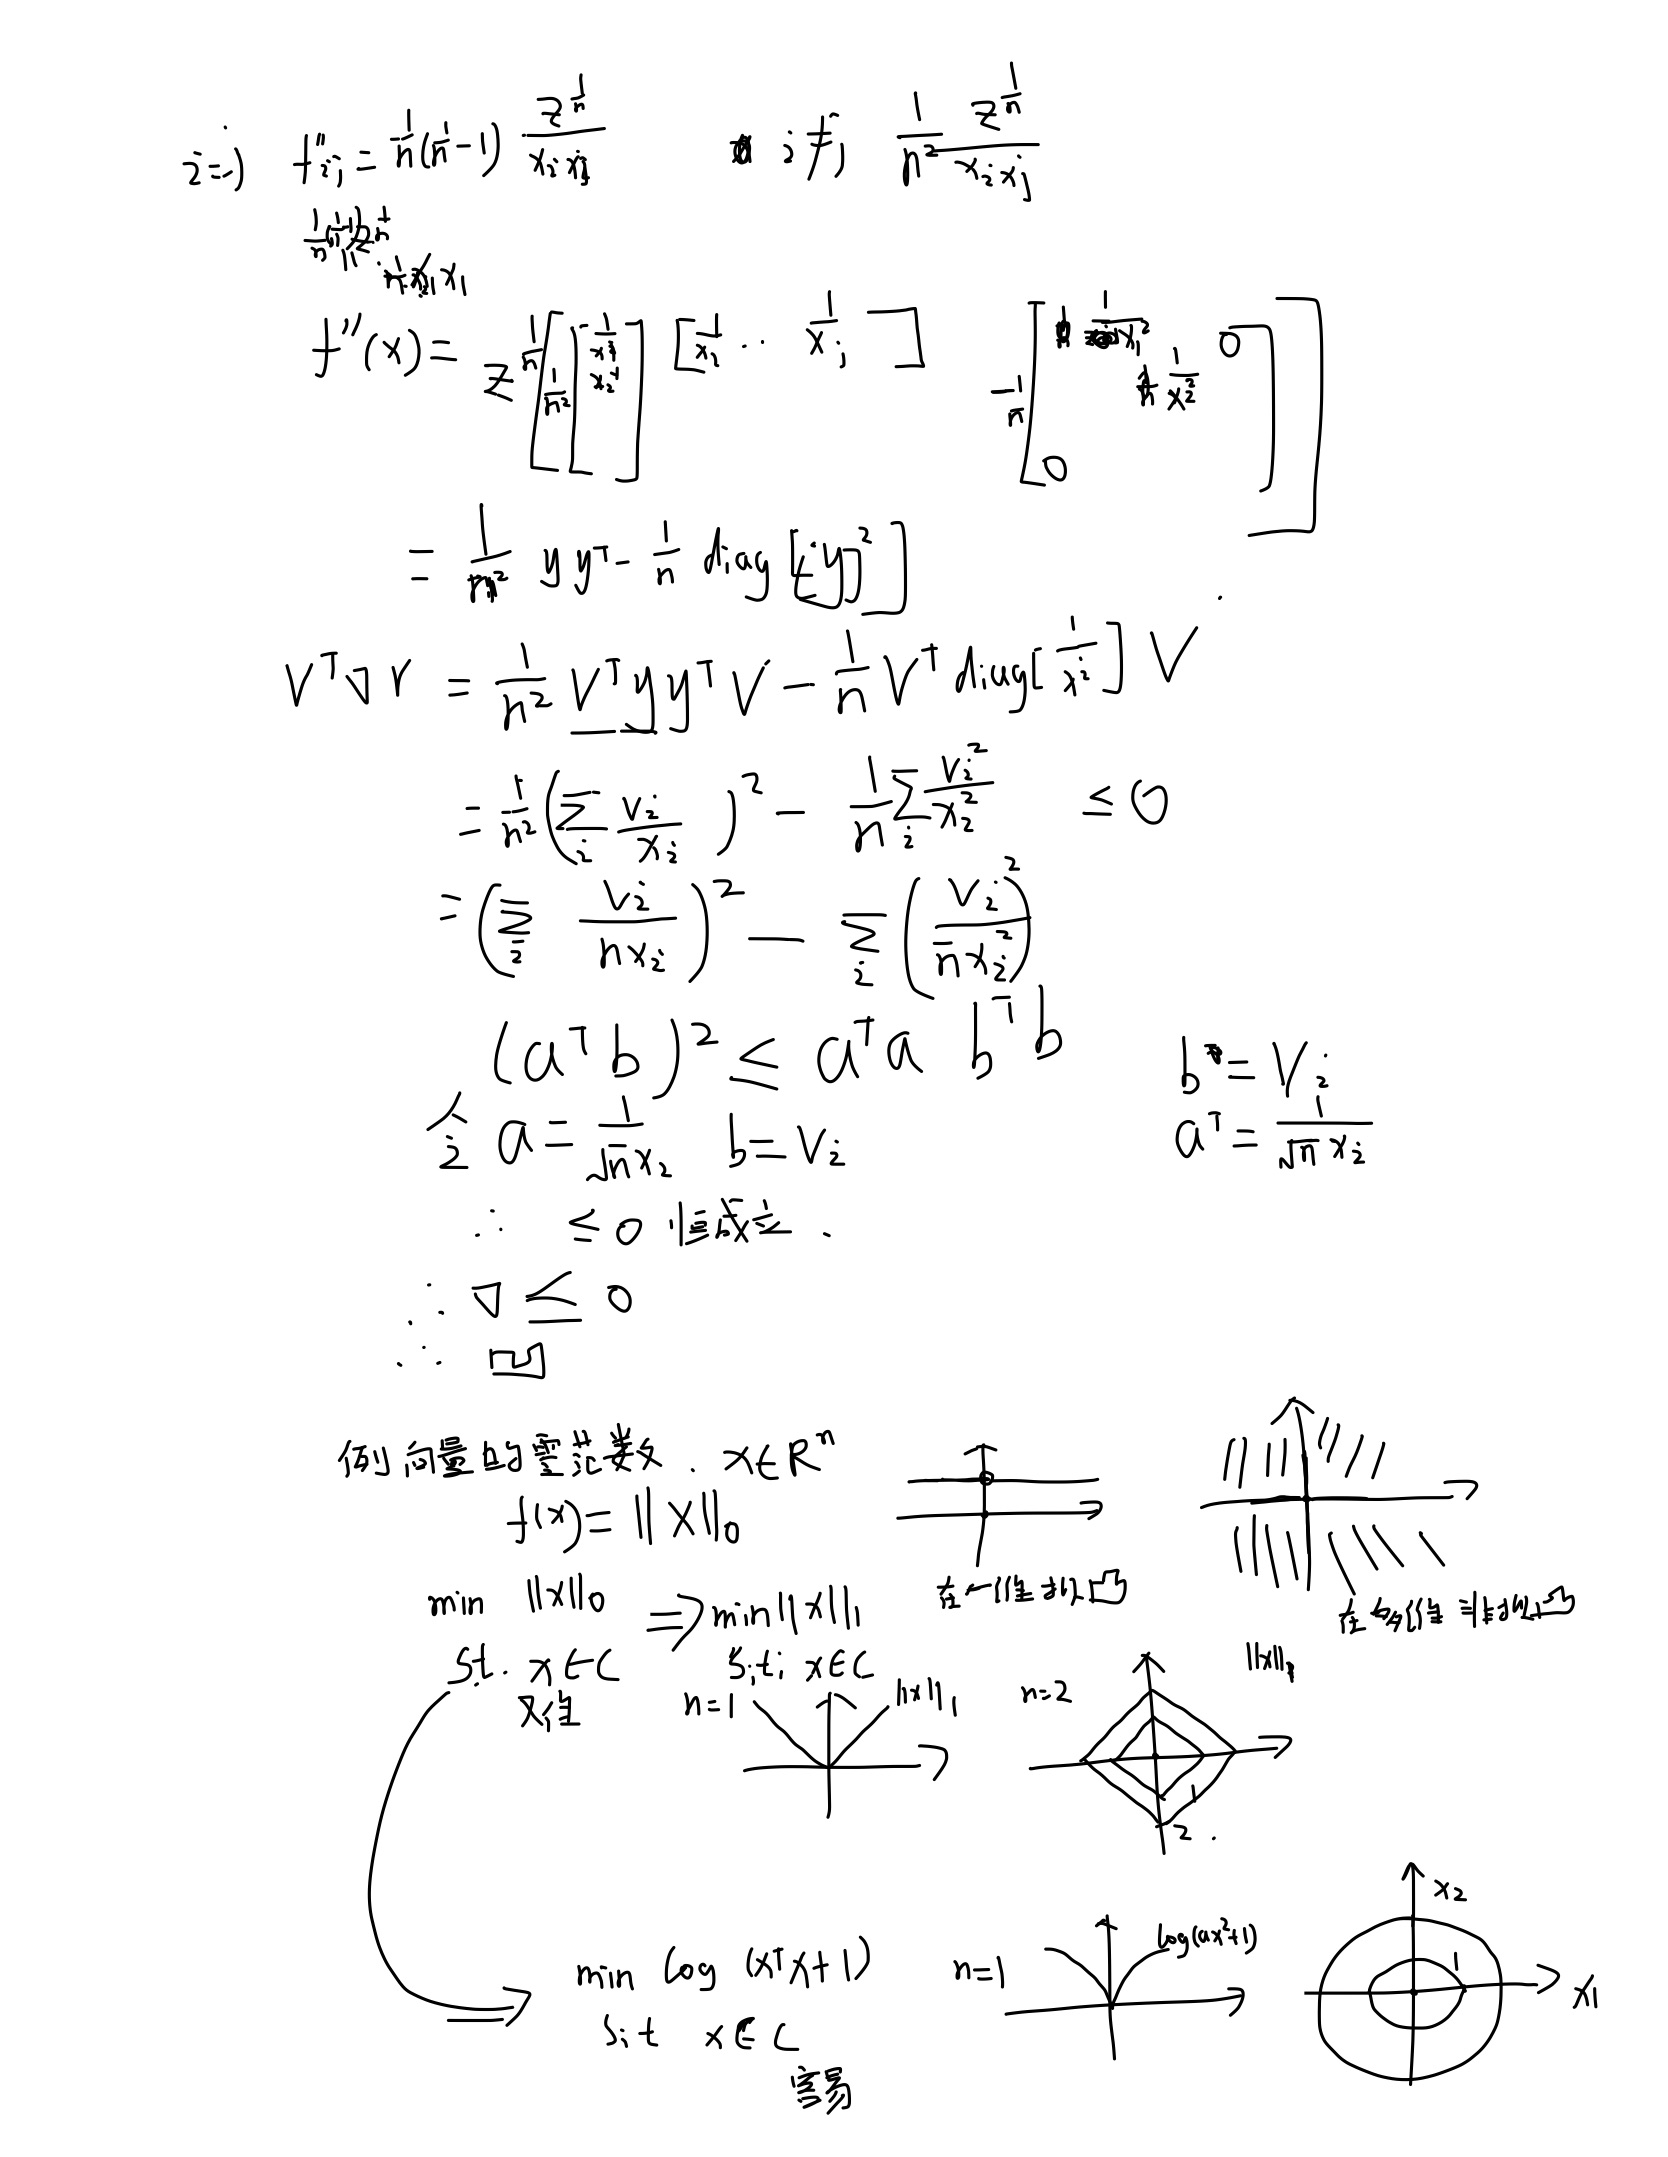 i=j f''ij = 1/n (1/n - 1) z^(1/n) / (xi xj) i≠j 1/n² z^(1/n) / (xi xj)
f''(x) = z^(1/n) [ 1/n² [ 1/x1 1/x2 ] [ 1/x1 ·· 1/xj ] - 1/n [ 1/x1² 1/x2² 0 0 ] ]
= 1/n² y yᵀ - 1/n diag [[y]²]
Vᵀ ∇ r = 1/n² Vᵀ y yᵀ V - 1/n Vᵀ diag[1/xi²] V
= 1/n² (Σi vi/xi)² - 1/n Σi vi²/xi² ≤ 0
= (Σi vi/(n xi))² - Σi (vi²/(n xi²))
(aᵀ b)² ≤ aᵀ a bᵀ b
b = Vi
令 a = 1/(√n xi) b = vi
aᵀ = 1/(√n xi)
∴ ≤ 0 恒成立.
∴ ∇ ≤ 0
∴ 凹
例 向量的零范数. x∈Rⁿ
f(x) = ||x||₀
在一维拟凸
在多维非拟凸
min ||x||₀ ⇒ min ||x||₁
s.t. x∈C s.t. x∈C
||x||₁
n=1 ||x||₁ n=2
1
2.
x2
min log (xᵀx+1) n=1 log(ax²+1) 1
x1
s.t x∈C
容易